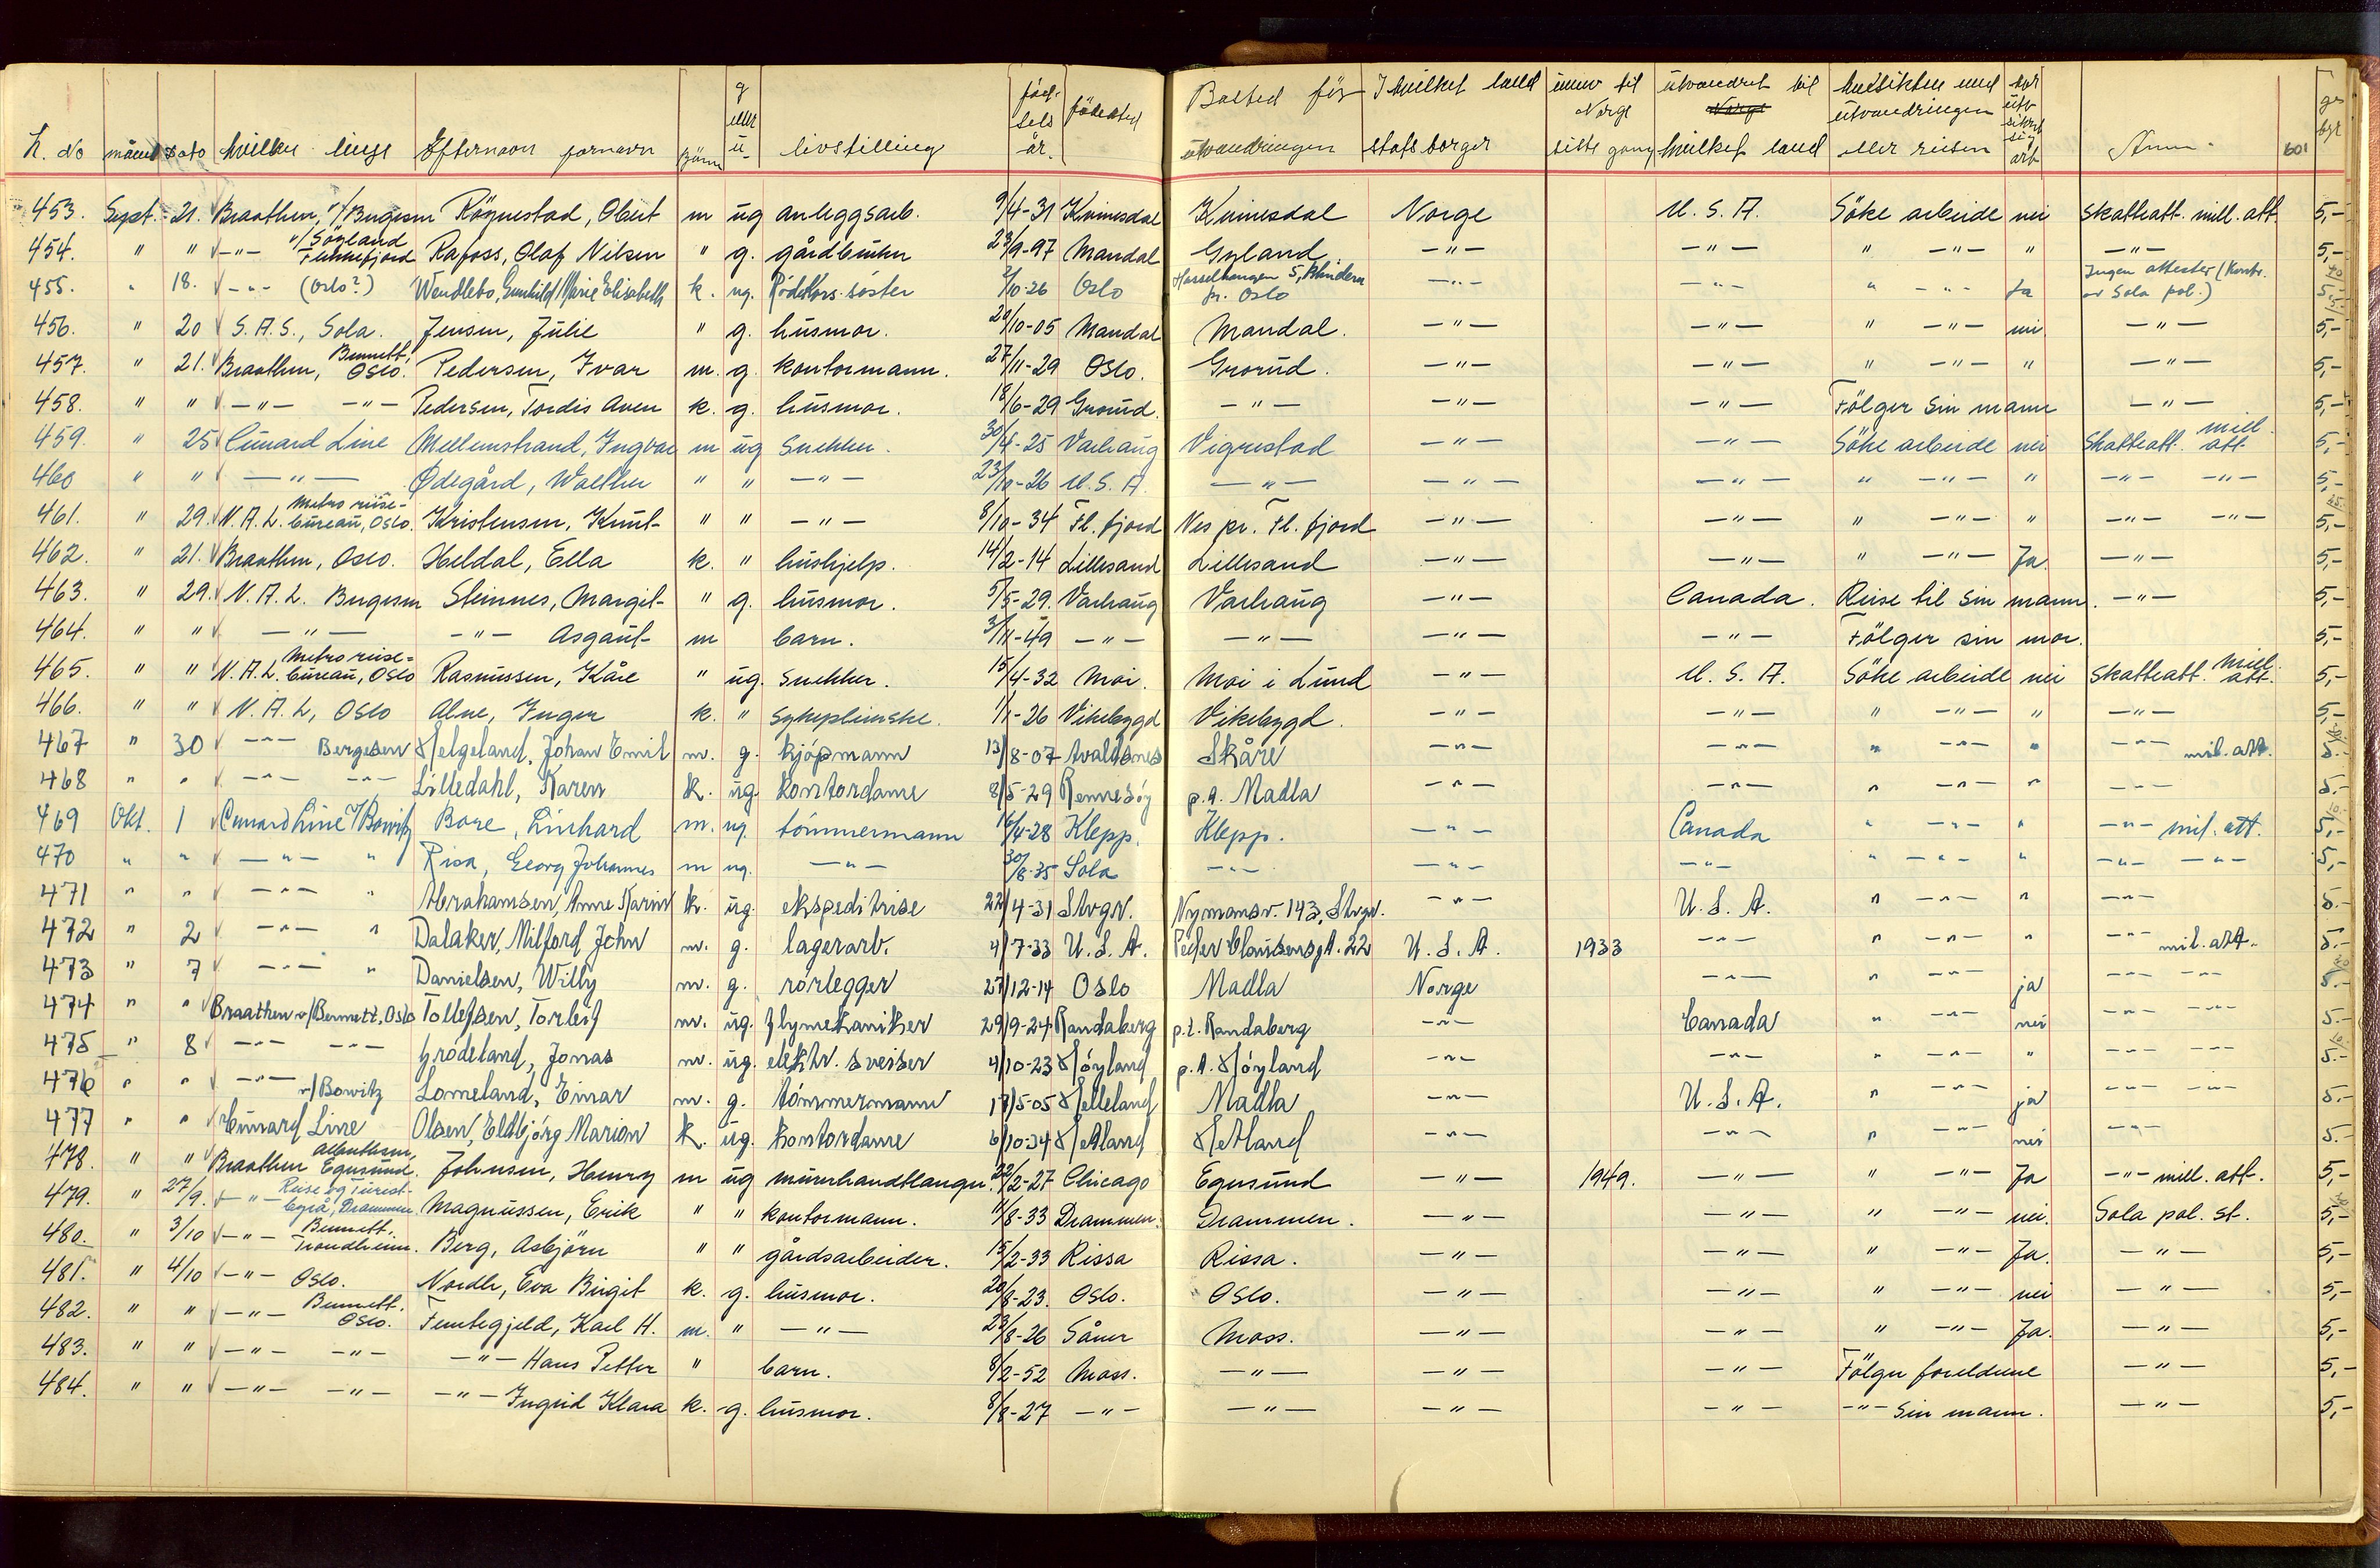 L. No måned Dato hvilken linje Efternavn fornavn kjønn g eller u. livstilling fød-sels år. fødested Bosted før utvandringen I hvilket land statsborger innv til Norge siste gang utvandret til Norge hvilket land hensikten med utvandringen eller reisen har utv sikret sig arb Anm. 601 gebyr
453. Sept. 21. Braathen, v/Bugesen Røynestad, Obert m ug anleggsarb. 9/4-31 Kvinesdal Kvinesdal Norge U.S.A. Søke arbeide nei Skatteatt. mill. att. 5,-
454. " " -"- v/Søyland Flekkefjord Rafoss, Olaf Nilsen " g. gårdbruker 23/9-97 Mandal Gyland. -"- -"- " -"- " -"- 5,-
455. " 18. -"- (Oslo?) Wendlebo, Gunhild Marie Elisabeth k. ug. Røde Kors-søster 2/10-26 Oslo Hasselhaugen 5, Blindern pr. Oslo -"- -"- " -"- Ja Ingen attester (Kontr. av Sola pol.) 5,-
456. " 20 S.A.S., Sola. Jensen, Julie " g. husmor. 20/10-05 Mandal Mandal. -"- -"- " -"- nei -"- 5,-
457. " 21. Braathen, Bennett, Oslo. Pedersen, Ivar m. g. kontormann. 27/11-29 Oslo. Grorud. -"- -"- " -"- " -"- 5,-
458. " " -"- -"- Pedersen, Tordis Aven k. g. husmor. 18/6-29 Grorud. -"- -"- -"- Følger sin mann -"- 5,-
459. " 25 Cunard Line Mellemstrand, Ingvar m ug Snekker. 30/4-25 Varhaug Vigrestad -"- -"- Søke arbeide nei Skatteatt. mill. att. 5,-
460 " " -"- Ødegård, Walther " " -"- 23/10-26 U.S.A. -"- -"- -"- " -"- " -"- -"- 5,-
461. " 29. N.A.L. Metro reise-bureau, Oslo. Kristensen, Knut " " -"- 8/10-34 Fl. fjord Nes pr. Fl. fjord -"- -"- " -"- " -"- -"- 5,-
462. " 21. Braathen, Oslo. Heldal, Ella k. " hushjelp. 14/2-14 Lillesand Lillesand -"- -"- " -"- Ja. -"- 5,-
463. " 29. N.A.L. Bugesen Steinnes, Margit " g. husmor. 5/5-29. Varhaug Varhaug -"- Canada. Reise til sin mann. -"- 5,-
464. " " -"- -"- Asgaut m barn. 3/11-49 -"- -"- -"- -"- Følger sin mor. 5,-
465. " " N.A.L. Metro reise-bureau, Oslo Rasmussen, Kåre " ug. snekker. 15/4-32 Moi. Moi i Lund -"- U.S.A. Søke arbeide nei Skatteatt. mill. att. 5,-
466. " " N.A.L, Oslo Alne, Inger k. " sykepleierske. 1/1-26 Vikebygd Vikebygd. -"- -"- " -"- " -"- 5,-
467 " 30 -"- Bergesen Helgeland, Johan Emil m. g. kjøpmann 13/8-07 Avaldsnes Skåre -"- -"- " -"- " -"- mil. att. 5.-
468 " " -"- -"- Lilledahl, Karen k. ug. kontordame 8/5-29 Rennesøy p.t. Madla -"- -"- " -"- " -"- 5.-
469 Okt. 1 Cunard Line v/Bowitz Bore, Linhard m. ug. tømmermann 16/4-28 Klepp. Klepp. -"- Canada " -"- " -"- mil. att. 5,-
470 " " -"- " Risa, Georg Johannes m ug. -"- 30/8-35 Sola -"- -"- -"- " -"- " -"- -"- 5,-
471 " " -"- " Abrahamsen, Anne Karin k. ug. ekspeditrise 22/4-31 Stvgr. Nymansv. 143, Stvgr. -"- U.S.A. " -"- " -"- 5.-
472 " 2 -"- " Dalaker, Milford John m. g. lagerarb. 4/7-33 U.S.A. Peder Clausensgt. 22 U.S.A. 1933 -"- " -"- " -"- mil. att. 5.-
473 " 7 -"- " Danielsen, Willy m. g. rørlegger 27/12-14 Oslo Madla Norge -"- " -"- ja -"- -"- 5.-
474 " " Braathen v/Bennett, Oslo Tollefsen, Torleif m. ug. flymekaniker 29/9-24 Randaberg p.t. Randaberg -"- Canada " -"- nei -"- -"- 5.-
475 " 8 -"- -"- Grødeland, Jonas m. ug. elektr. sveiser 4/10-23 Høyland p.t. Høyland -"- -"- " -"- " -"- -"- 5.-
476 " " -"- v/Bowitz Lomeland, Einar m. g. tømmermann 17/5-05 Helleland Madla -"- U.S.A. " -"- ja -"- -"- 5.-
477 " " Cunard Line Olsen, Eldbjørg Marion k. ug. kontordame 6/10-34 Hetland Hetland -"- -"- " -"- nei -"- 5.-
478. " " Braathen Egersund. Johnsen, Henry m ug murerhandtlanger. 22/2-27 Chicago Egersund -"- 1949. -"- " -"- Ja -"- mill. att. 5,-
479. " 27/9. -"- Reise og Turist-byrå, Drammen. Magnussen, Erik " " kontormann. 11/8-33 Drammen. Drammen. -"- -"- " -"- nei. Sola pol. st. 5,-
480. " 3/10 -"- Bennett, Trondheim. Berg, Asbjørn " " gårdsarbeider. 15/2-33 Rissa Rissa. -"- -"- " -"- Ja. -"- 5,-
481. " 4/10 -"- Oslo. Nordli, Eva Birgit k. g. husmor. 20/8-23. Oslo. Oslo. -"- -"- " -"- nei -"- 5,-
482. " " -"- Bennett. Oslo. Femtegjeld, Karl H. m. " -"- 23/8-26 Såner Moss. -"- -"- " -"- Ja. -"- 5,-
483. " " -"- -"- -"- Hans Petter " barn. 8/2-52 Moss. -"- -"- -"- Følger foreldrene -"- 5,-
484. " " -"- -"- -"- Ingrid Klara k. g. husmor. 8/8-27 -"- -"- -"- -"- -"- sin mann. -"- 5,-